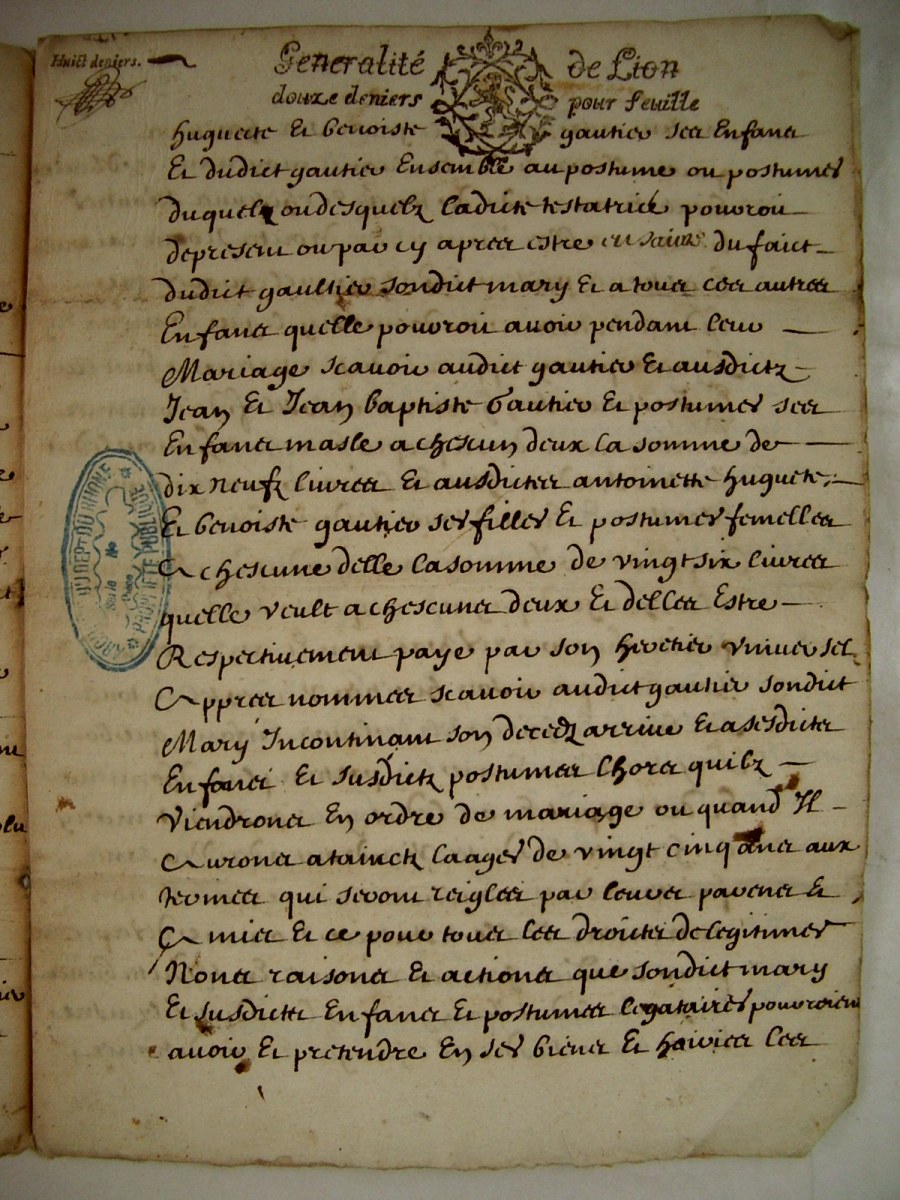 Huict deniers.
Generalité de Lion
douze deniers pour feuille
huguete Et benoiste gautier ses Enfans
Et dudict gautier Ensemble au postume ou postumes
duquelz ou desquelz ladicte testatrice pouroit
depresent ou par cy apres estre ensainte du faict
dudict gaultier sondict mary Et a tous ces autres
Enfans quelle pouroit avoir pendant leur
Mariage scavoir audict gautier Et ausdictz
Jean Et Jean baptiste Gautier Et postumes ses
Enfans masle a chescun deux la somme de
dix neufz livres Et ausdictes antoinette huguete
Et benoiste gautier ses filles Et postumes femelles
A chescune delle la somme de vingt six livres
quelle veult a chescuns deux Et delles Estre
Respectivement paye par son heretier univer sel
Appres nommes scavoir audict gautier sondict
Mary Incontinant son decedz arrive Et a sesdictes
Enfans Et susdictz postumes lhors quilz
Viendront En ordre de mariage ou quand Il
Auront atainctz laages de vingt cinq ans aux
termes qui seront reigles par leurs parens Et
Amis Et ce pour tous les droicts de legitimes
Noms raisons Et actions que sondict mary
Et susdicts Enfans Et postumes legataires pouroient
avoir Et pretendre En ses biens Et hoiries les